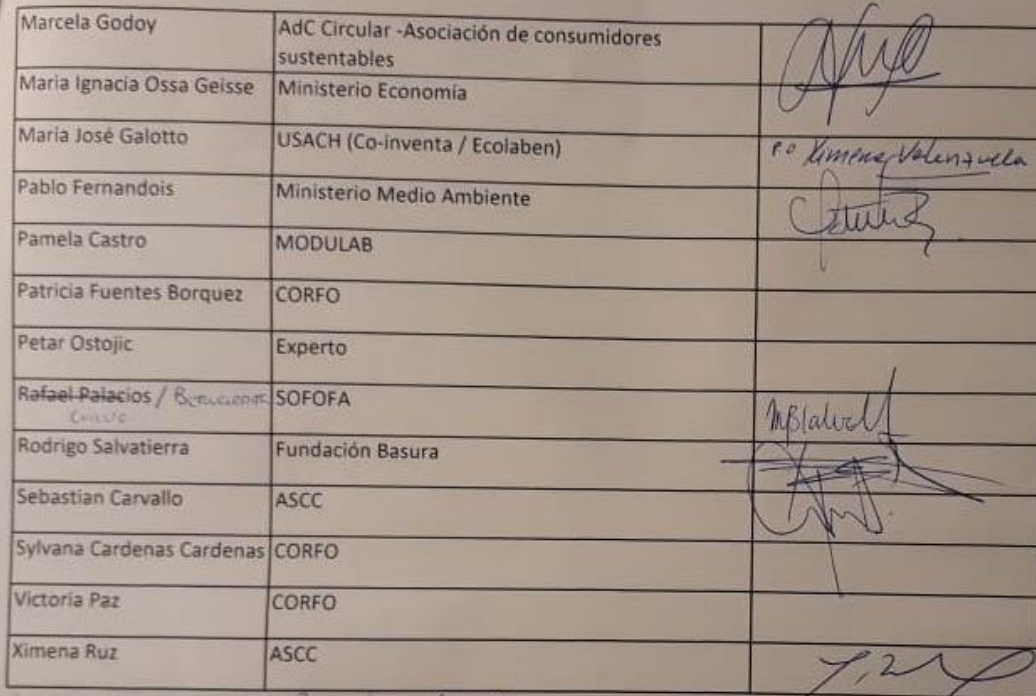 Marcela Godoy AdC Circular -Asociación de consumidores
sustentables
Maria Ignacia Ossa Geisse Ministerio Economía
María José Galotto USACH (Co-inventa / Ecolaben) P.O Ximena Valenzuela
Pablo Fernandois Ministerio Medio Ambiente
Pamela Castro MODULAB
Patricia Fuentes Borquez CORFO
Petar Ostojic Experto
Rafael Palacios / SOFOFA
Rodrigo Salvatierra Fundación Basura
Sebastian Carvallo ASCC
Sylvana Cardenas Cardenas CORFO
Victoria Paz CORFO
Ximena Ruz ASCC